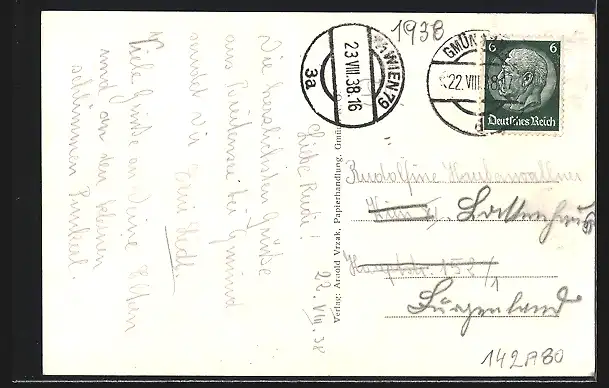 1938
Liebe Rudi! 22. VIII. 38
Die herzlichsten Grüße
aus Breitensee bei Gmünd
sendet Dir
Viele Grüße an Deine Eltern
und an den kleinen
schlimmen
Verlag: Arnold Vrzak, Papierhandlung, Gmünd
3a
23.VIII.38.16
WIEN 79
GMÜN
22.VIII.38
6 6
Deutsches Reich
Rudolfine
Wien
152/1
Burgenland
142A80